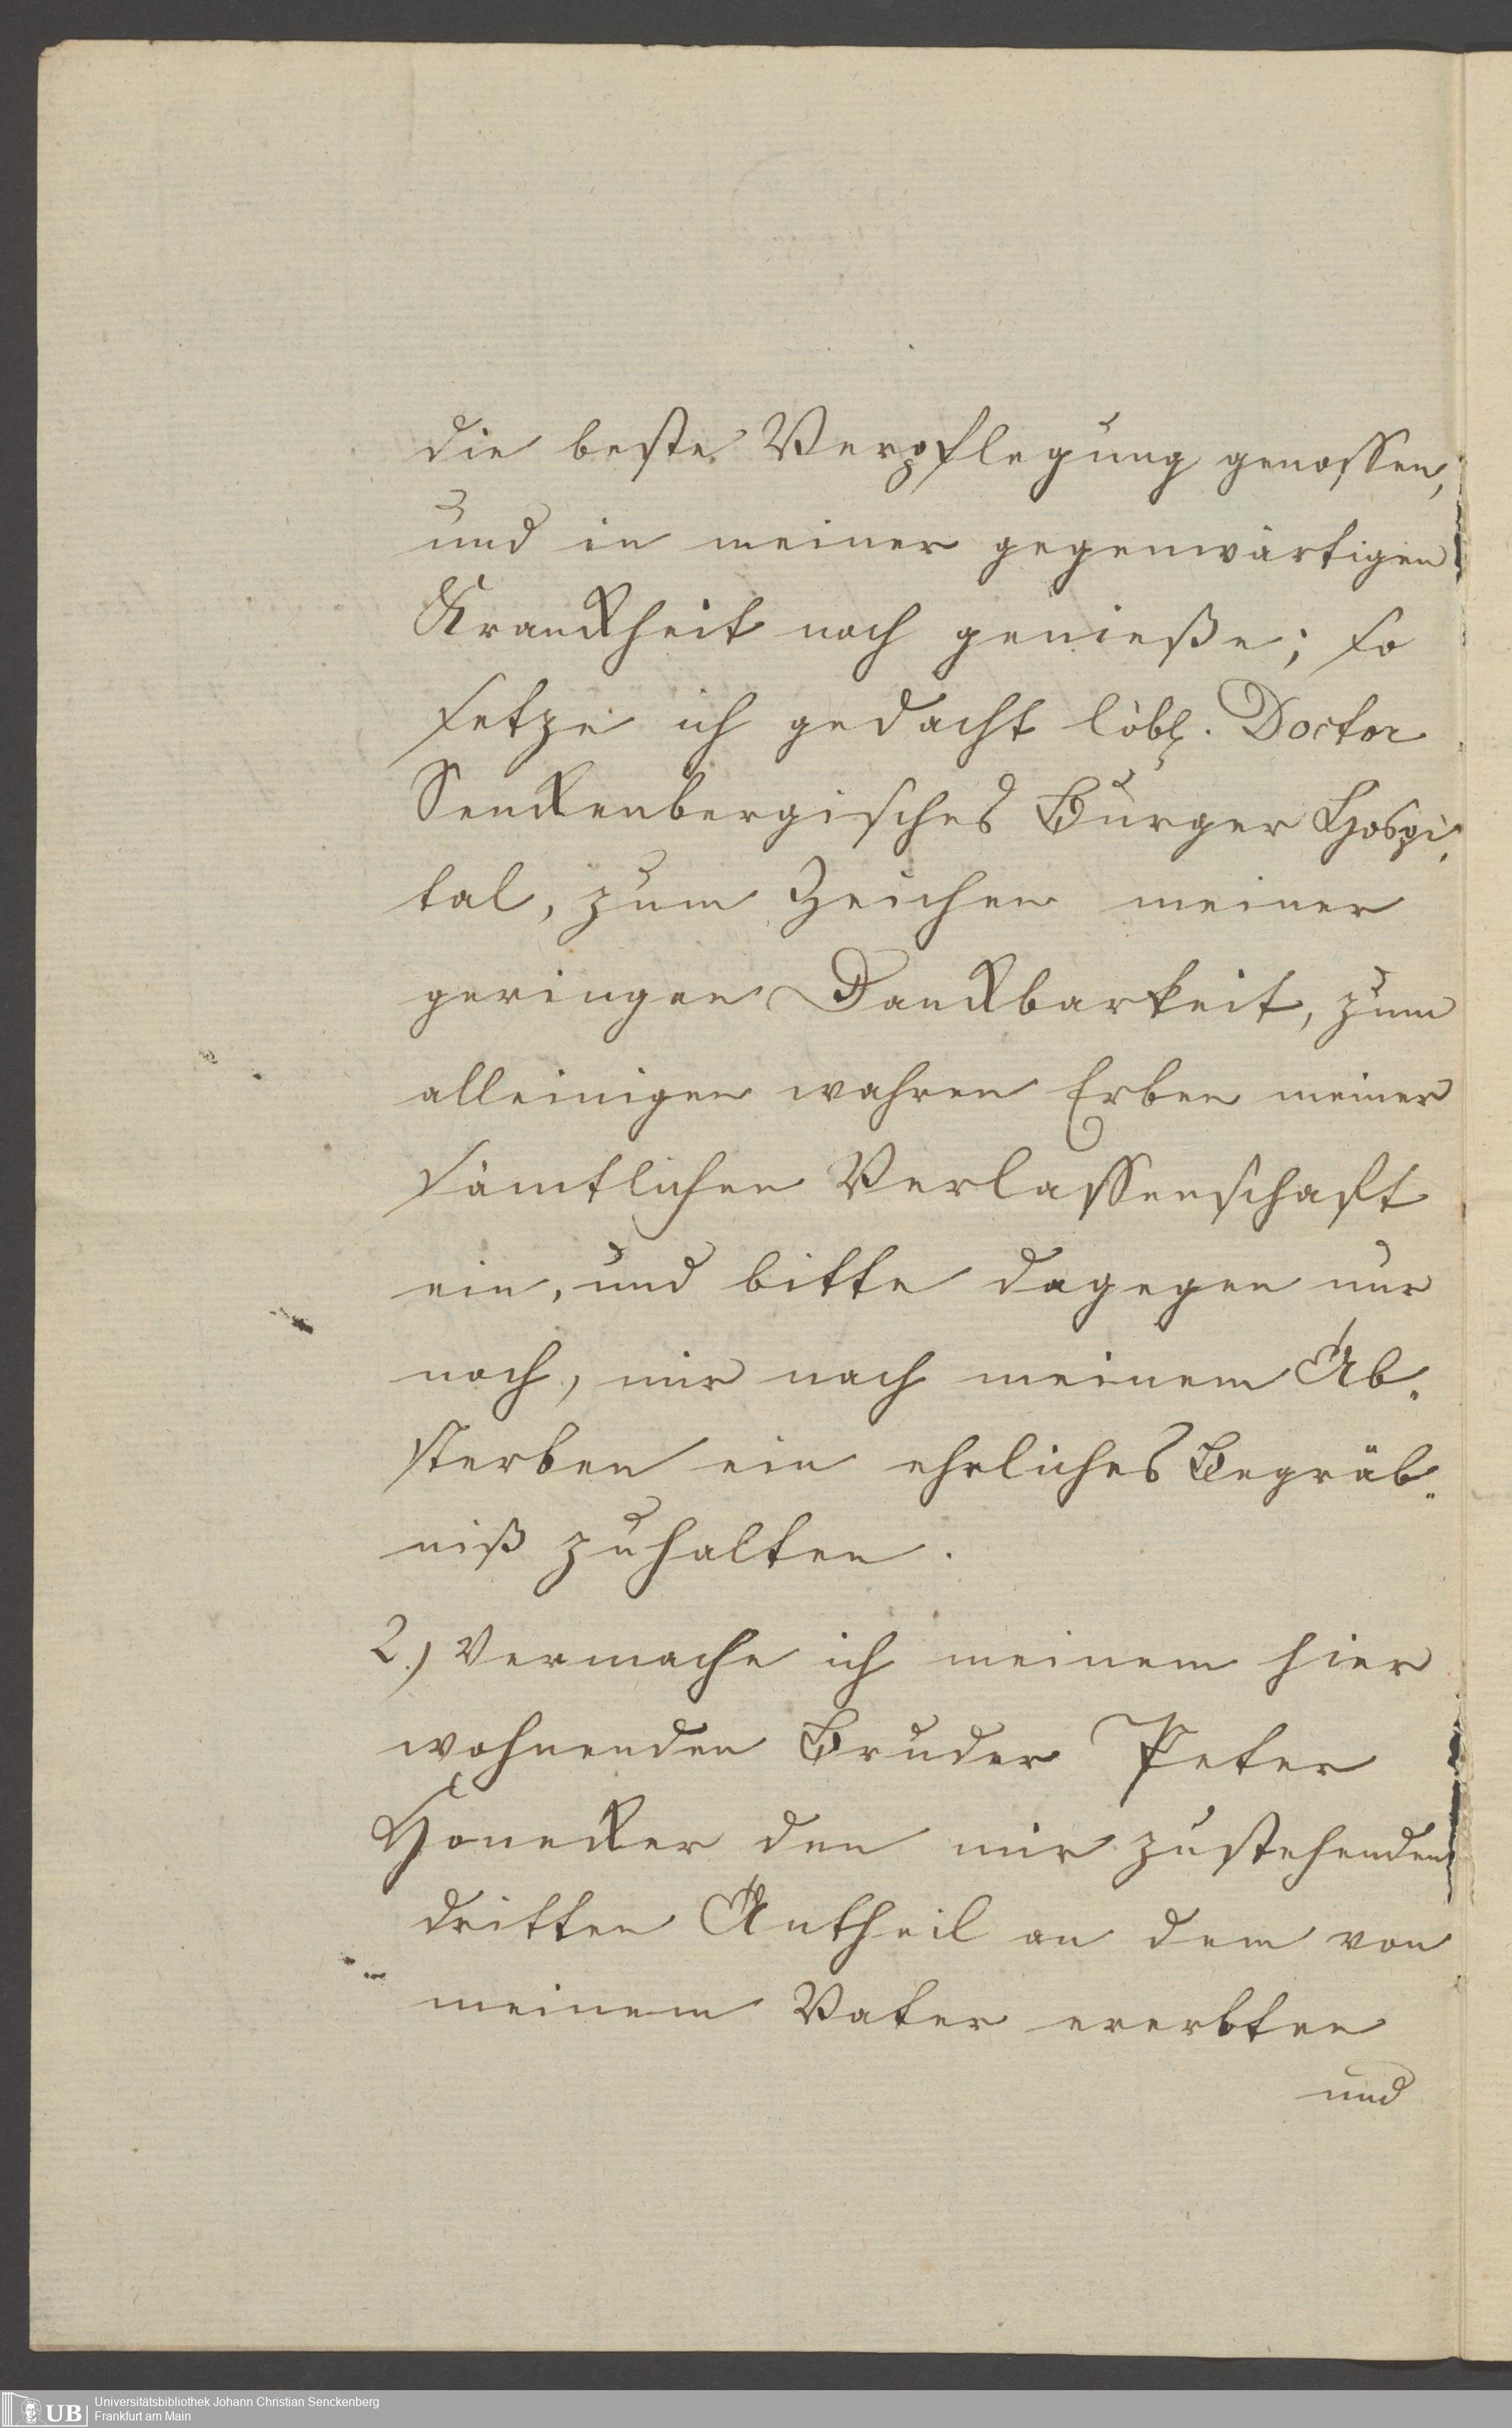 die beste Verpflegung genossen,
und in meiner gegenwärtigen
Kranckheit noch genieße; so
setze ich gedacht löbl. Doctor
Senckenbergisches Bürger Hospi„
tal, zum Zeichen meiner
geringen Danckbarkeit, zum
alleinigen wahren Erben meiner
sämtlichen Verlassenschaft
ein, und bitte dagegen nur
noch, mir nach meinem Ab„
sterben ein ehrliches Begräb„
niß zuhalten.
2.) Vermache ich meinem hier
wohnenden Bruder Peter
Honecker den mir zustehenden
dritten Antheil an dem von
meinem Vater ererbten
und
UB
Universitätsbibliothek Johann Christian Senckenberg
Frankfurt am Main